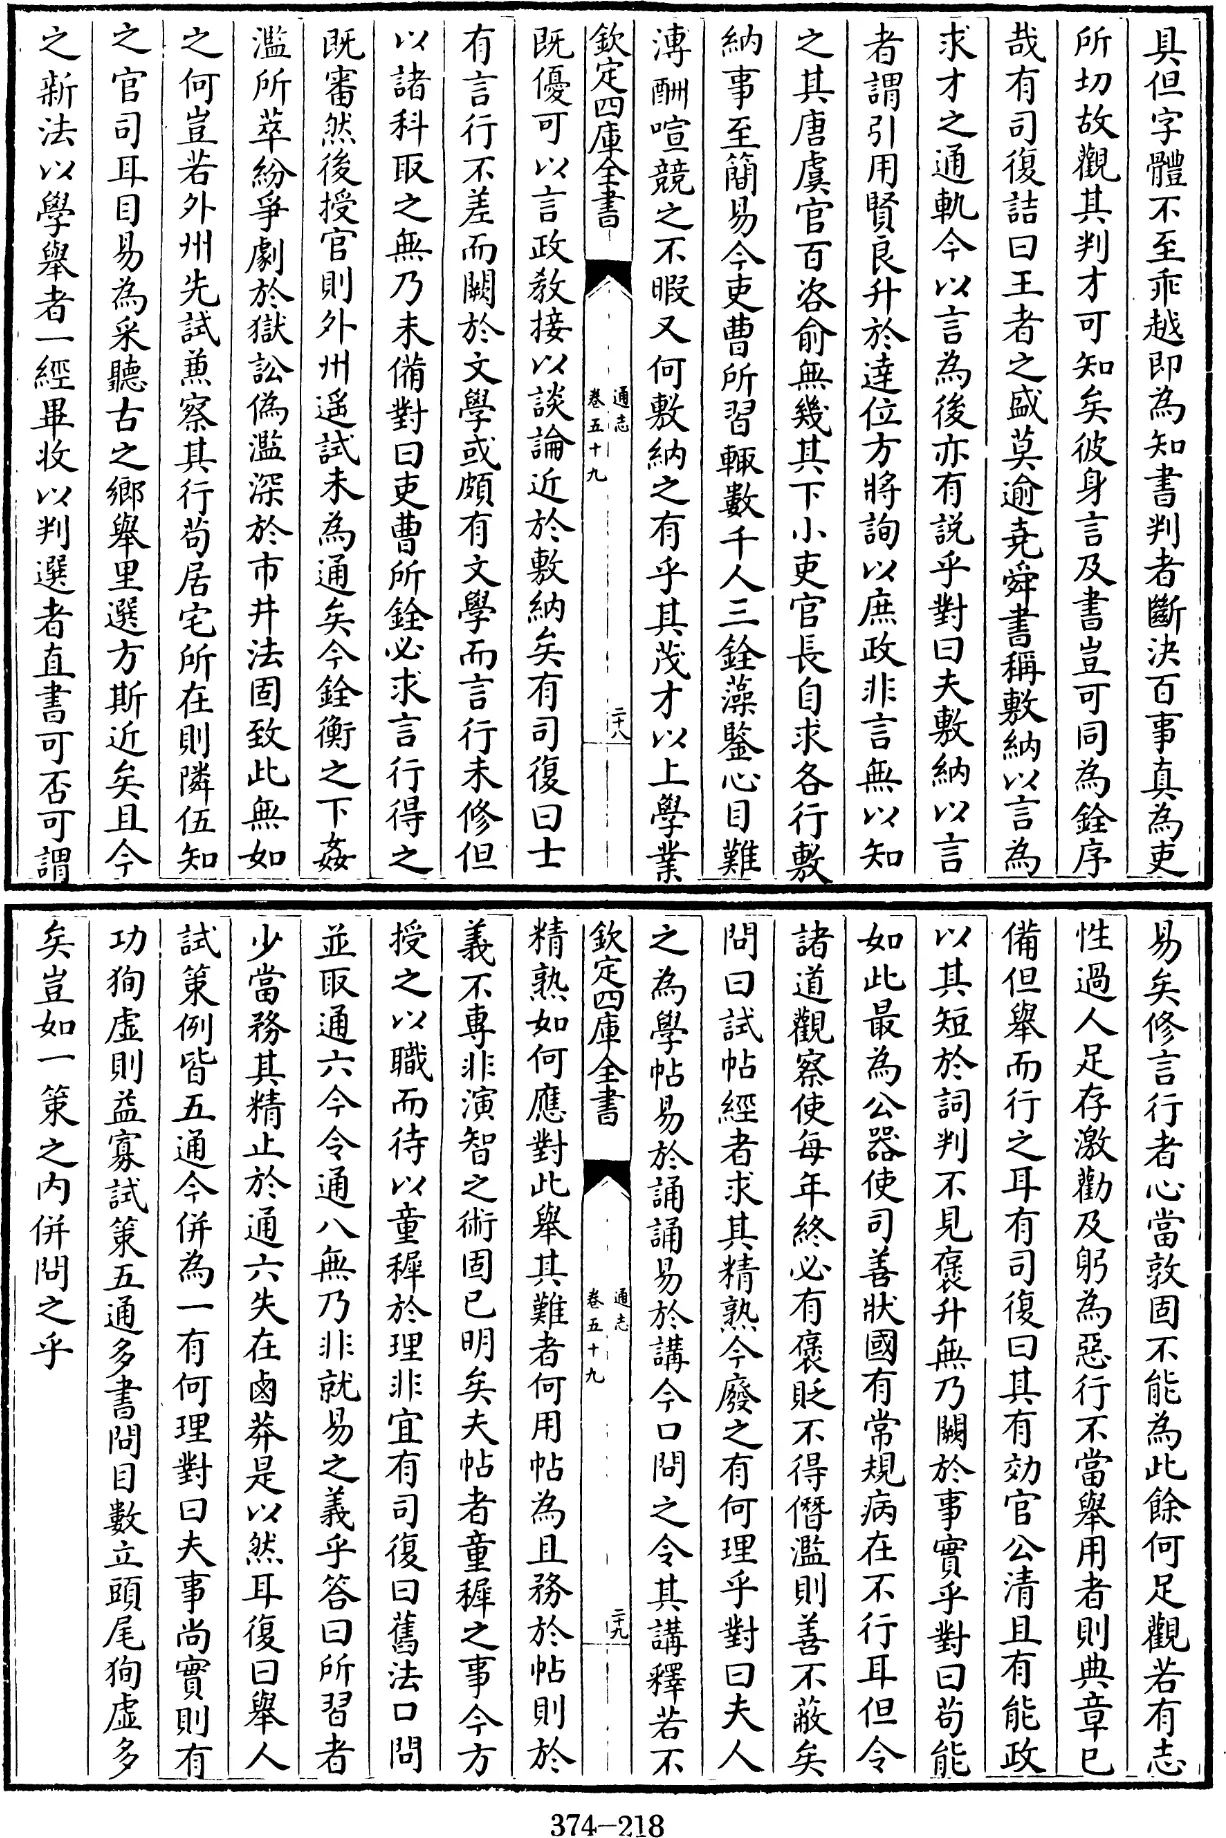 具但字體不至乖越即為知書判者斷決百事真為吏
所切故觀其判才可知矣彼身言及書豈可同為銓序
哉有司復詰曰王者之盛莫逾堯舜書稱敷納以言為
求才之通軌今以言為後亦有説乎對曰夫敷納以言
者謂引用賢良升於達位方將詢以庶政非言無以知
之其唐虞官百咨俞無幾其下小吏官長自求各行敷
納事至簡易今吏曹所習輙數千人三銓藻鑒心目難
溥酬喧競之不暇又何敷納之有乎其茂才以上學業
欽定四庫全書
通志
卷五十九
二十八
既優可以言政教接以談論近於敷納矣有司復曰士
有言行不差而闕於文學或頗有文學而言行未修但
以諸科取之無乃未備對曰吏曹所銓必求言行得之
既審然後授官則外州遥試未為通矣今銓衡之下姦
濫所萃紛爭劇於獄訟偽濫深於市井法固致此無如
之何豈若外州先試兼察其行苟居宅所在則隣伍知
之官司耳目易為采聽古之鄉舉里選方斯近矣且今
之新法以學舉者一經畢收以判選者直書可否可謂
易矣修言行者心當敦固不能為此餘何足觀若有志
性過人足存激勸及躬為惡行不當舉用者則典章已
備但舉而行之耳有司復曰其有効官公清且有能政
以其短於詞判不見襃升無乃闕於事實乎對曰苟能
如此最為公器使司善狀國有常規病在不行耳但令
諸道觀察使每年終必有襃貶不得僭濫則善不蔽矣
問曰試帖經者求其精熟今廢之有何理乎對曰夫人
之為學帖易於誦誦易於講今口問之令其講釋若不
欽定四庫全書
通志
卷五十九
二十九
精熟如何應對此舉其難者何用帖為且務於帖則於
義不專非演智之術固已明矣夫帖者童穉之事今方
授之以職而待以童穉於理非宜有司復曰舊法口問
並取通六今令通八無乃非就易之義乎答曰所習者
少當務其精止於通六失在鹵莽是以然耳復曰舉人
試策例皆五通今併為一有何理對曰夫事尚實則有
功狥虛則益寡試策五通多書問目數立頭尾狥虛多
矣豈如一策之内併問之乎
374-218